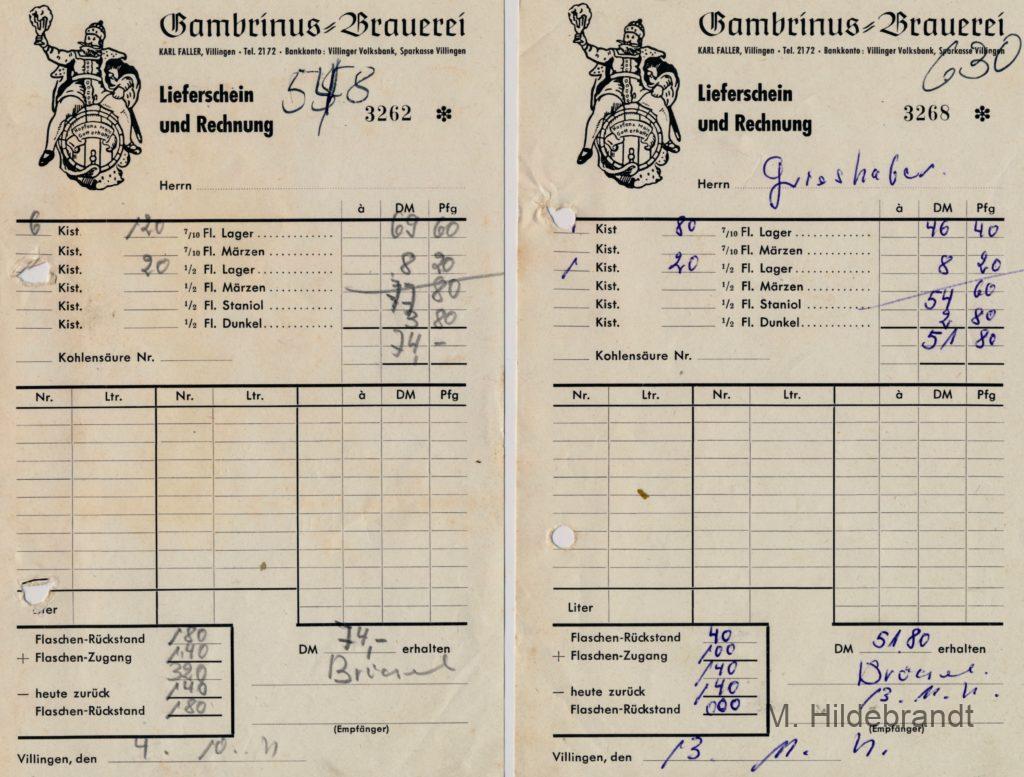 Gambrinus-Brauerei
KARL FALLER, Villingen · Tel. 2172 · Bankkonto: Villinger Volksbank, Sparkasse Villingen
Lieferschein
und Rechnung
3262 ✻
Herrn
à DM Pfg
6 Kist. 120 7/10 Fl. Lager 69 60
Kist. 7/10 Fl. Märzen
Kist. 20 1/2 Fl. Lager 8 20
Kist. 1/2 Fl. Märzen 77 80
Kist. 1/2 Fl. Staniol
Kist. 1/2 Fl. Dunkel 3 80
74 -
Kohlensäure Nr.
Nr. Ltr. Nr. Ltr. à DM Pfg
Flaschen-Rückstand 180
+ Flaschen-Zugang 140
320
— heute zurück 140
Flaschen-Rückstand 180
DM 74,- erhalten
(Empfänger)
Villingen, den 4. 10.
Gambrinus-Brauerei
KARL FALLER, Villingen · Tel. 2172 · Bankkonto: Villinger Volksbank, Sparkasse Villingen
630
Lieferschein
und Rechnung
3268 ✻
Herrn Grieshaber.
à DM Pfg
Kist 80 7/10 Fl. Lager 46 40
Kist. 7/10 Fl. Märzen
1 Kist. 20 1/2 Fl. Lager 8 20
Kist. 1/2 Fl. Märzen 60
Kist. 1/2 Fl. Staniol 54
Kist. 1/2 Fl. Dunkel 2 80
51 80
Kohlensäure Nr.
Nr. Ltr. Nr. Ltr. à DM Pfg
Liter
Flaschen-Rückstand 40
+ Flaschen-Zugang 100
140
— heute zurück 140
Flaschen-Rückstand 000
DM 51.80 erhalten
(Empfänger)
M. Hildebrandt
Villingen, den 13. 11.